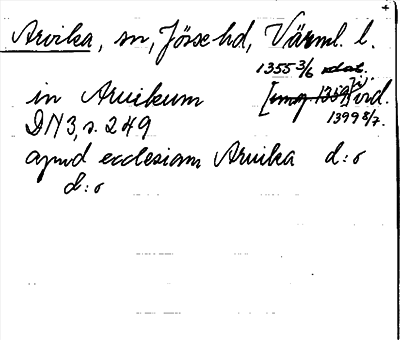 Arvika, sn, Jösse hd, Värml. l.
1355 3/6
in Arvikum [omg 1359] vid.
1399 8/7.
DN3, s. 249
apud ecclesiam Arvika d:o
d:o